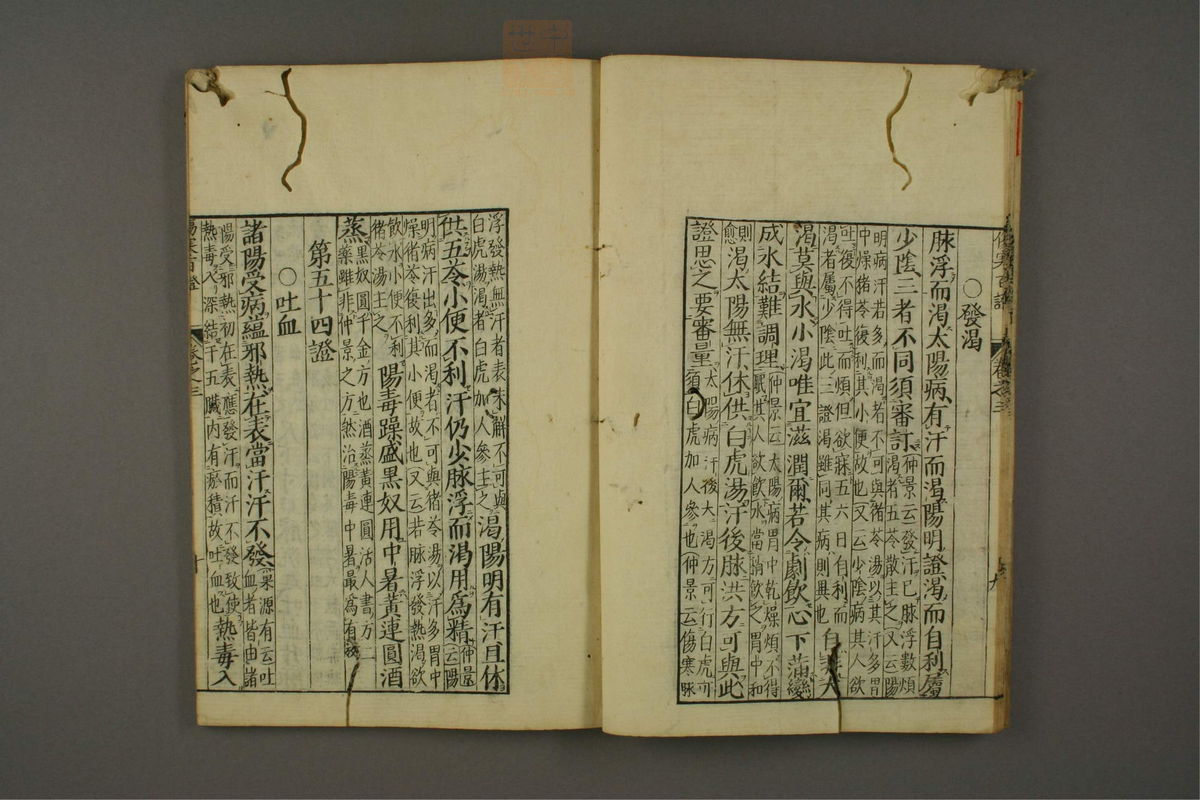 ○發渴
脉浮而渴太陽病有汗而渴陽明證渴而自利屬
少陰三者不同須審訂仲景云發汗已脉浮數煩
渴者五苓散主之又云陽
明病汗若多而渴者不可與猪苓湯以其汗多胃
中燥猪苓復利其小便故也又云少陰病其人欲
吐復不得吐而煩但欲寐五六日自利而
渴者屬少陰此三證渴雖同其病則異也自非大
渴莫與水小渴唯宜滋潤爾若令劇飲心下滿變
成水結難調理仲景云太陽病胃中乾燥煩不得
眠其人欲飲水當稍飲之胃中和
則愈渴太陽無汗休供白虎湯汗後脉洪方可與此
證思之要審量太陽病汗後大渴方可行白虎可
須白虎加人參也仲景云傷寒脉
卷之三
九
浮發熱無汗者表未解不可與
白虎湯渴者白虎加人參主之渴陽明有汗且休
供五苓小便不利汗仍少脉浮而渴用爲精仲景
云陽
明病汗出多而渴者不可與猪苓湯以汗多胃中
燥猪苓復利其小便故也又云若脉浮發熱渴欲
飲水小便不利
猪苓湯主之陽毒躁盛黑奴用中暑黃連圓酒
蒸黑奴圓千金方也酒蒸黃連圓活人書方二
藥雖非仲景之方然治陽毒中暑最爲有效
第五十四證
○吐血
諸陽受病蘊邪熱在表當汗汗不發巢源有云吐
血者皆由諸
陽受邪熱初在表應發汗而汗不發致使
熱毒入深結于五臟內有瘀積故吐血也熱毒入
卷之三
十